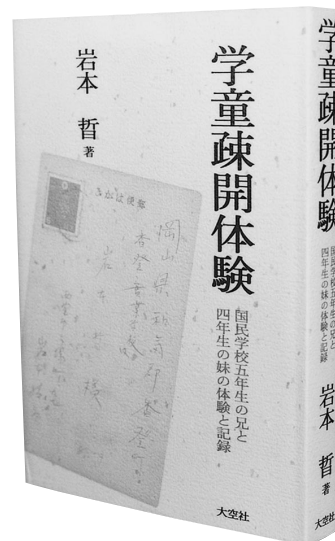 学童疎開体験
国民学校五年生の兄と
四年生の妹の体験と記録
岩本 哲 著
大空社
学童疎開体験
国民学校五年生の兄と
四年生の妹の体験と記録
岩本 哲 著
大空社